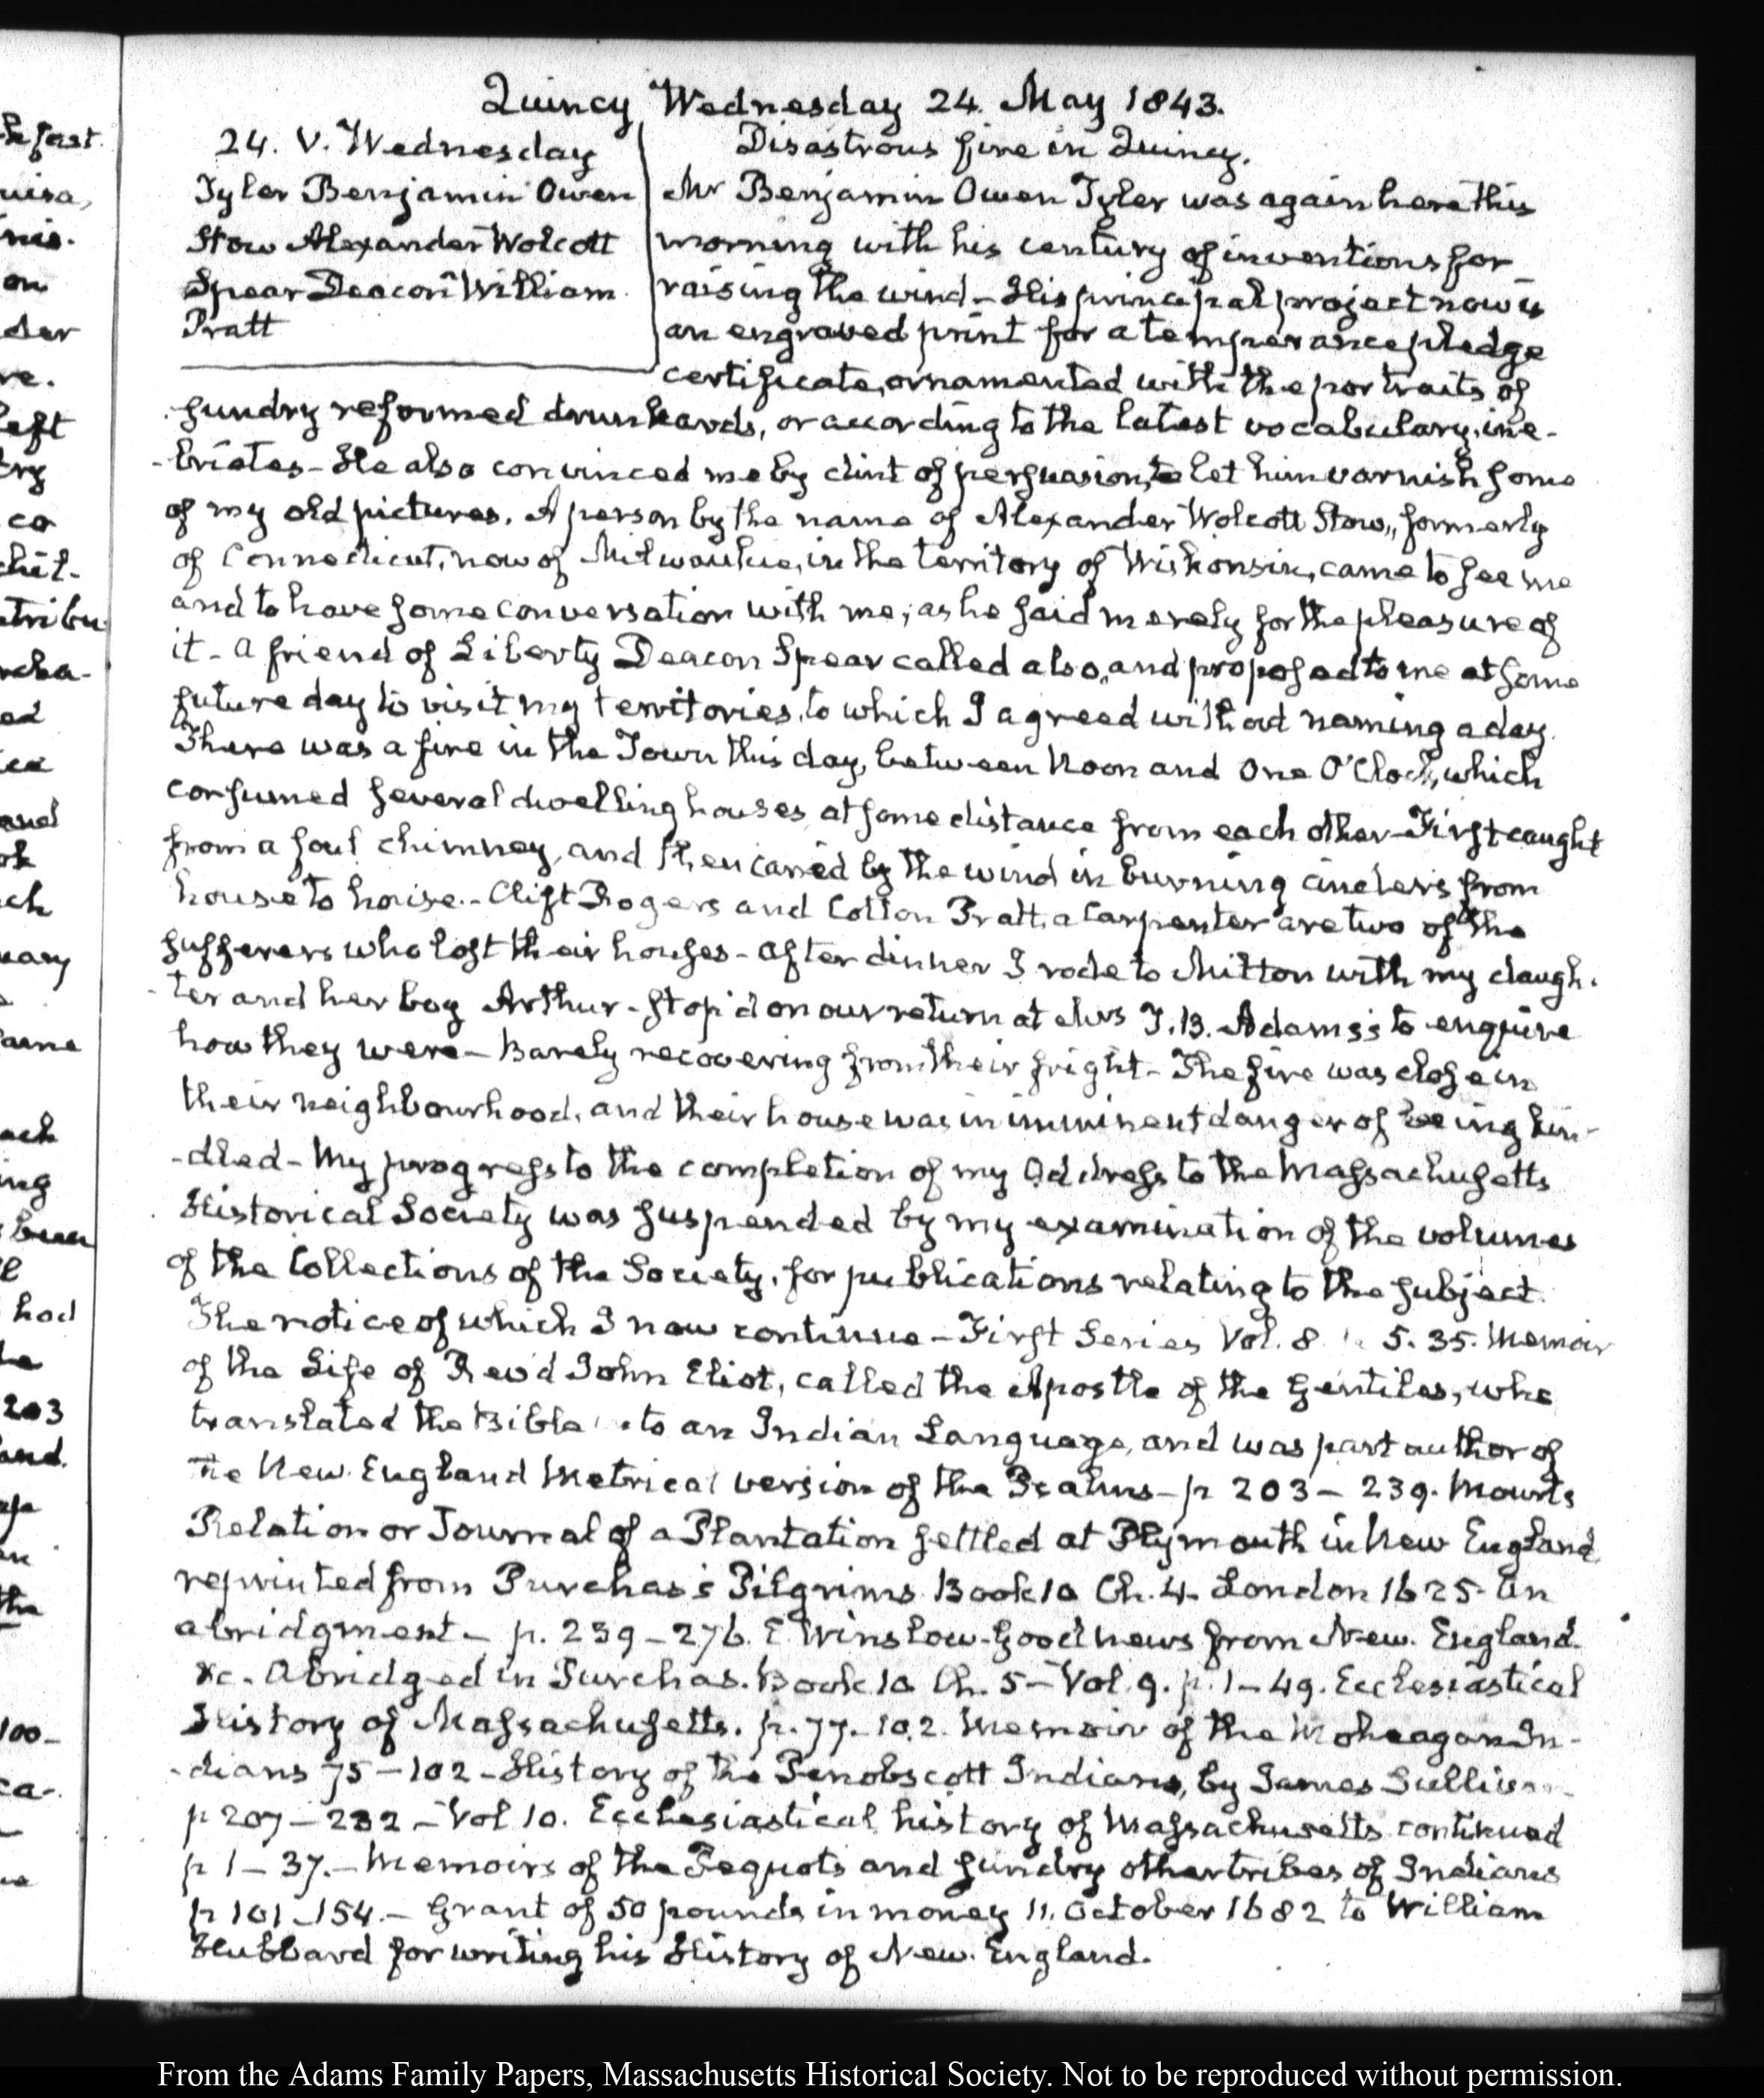 Quincy Wednesday 24. May 1843.
24. V. Wednesday
Tyler Benjamin Owen
Stow Alexander Wolcott
Spear Deacon William
Pratt
Disastrous fire in Quincy.
Mr Benjamin Owen Tyler was again here this
morning with his century of inventions for
raising the wind - His principal project now is
an engraved print for a temperance pledge
certificate, ornamented with the portraits of
sundry reformed drunkards, or according to the latest vocabulary, ine-
-briates - He also convinced me by dint of persuasion, to let him varnish some
of my old pictures. A person by the name of Alexander Wolcott Stow, formerly
of Connecticut, now of Milwaukie, in the territory of Wiskonsin, came to see me
and to have some conversation with me; as he said merely for the pleasure of
it - a friend of Liberty Deacon Spear called also, and proposed to me at some
future day to visit my territories, to which I agreed without naming a day.
There was a fire in the Town this day, between Noon and One O'Clock, which
consumed several dwelling houses, at some distance from each other - First caught
from a foul chimney, and then carried by the wind in burning cinders from
house to house. - Clift Rogers and Cotton Pratt, a Carpenter are two of the
sufferers who lost their houses - after dinner I rode to Milton with my daugh-
-ter and her boy Arthur - stop'd on our return at Mrs T. B. Adams's to enquire
how they were - Barely recovering from their fright - The fire was close in
their neighbourhood, and their house was in imminent danger of being kin-
-dled - My progress to the completion of my Address to the Massachusetts
Historical Society was suspended by my examination of the volumes
of the Collections of the Society, for publications relating to the subject.
The notice of which I now continue - First Series Vol. 8 5. 35. Memoir
of the Life of Rev'd John Eliot, called the Apostle of the Gentiles, who
translated the Bible to an Indian Language, and was part author of
the New England Metrical version of the Psalms - p 203 - 239. Mourts
Relation or Journal of a Plantation settled at Plymouth in New England
reprinted from Purchas's Pilgrims Book 10 Ch. 4. London 1625. An
abridgment - p. 239 - 276. E. Winslow. Good news from New England.
&c. Abridged in Purchas. Book 10 Ch. 5 - Vol. 9. p. 1 - 49. Ecclesiastical
History of Massachusetts. p. 77 - 102. Memoir of the Moheagan In-
-dians 75 - 102 - History of the Penobscott Indians, by James Sullivan
p 207 - 232 - Vol 10. Ecclesiastical history of Massachusetts continued
p 1 - 37. - Memoirs of the Pequots and sundry other tribes of Indians
p 101 - 154. - Grant of 50 pounds in money 11. October 1682 to William
Hubbard for writing his History of New England.
From the Adams Family Papers, Massachusetts Historical Society. Not to be reproduced without permission.